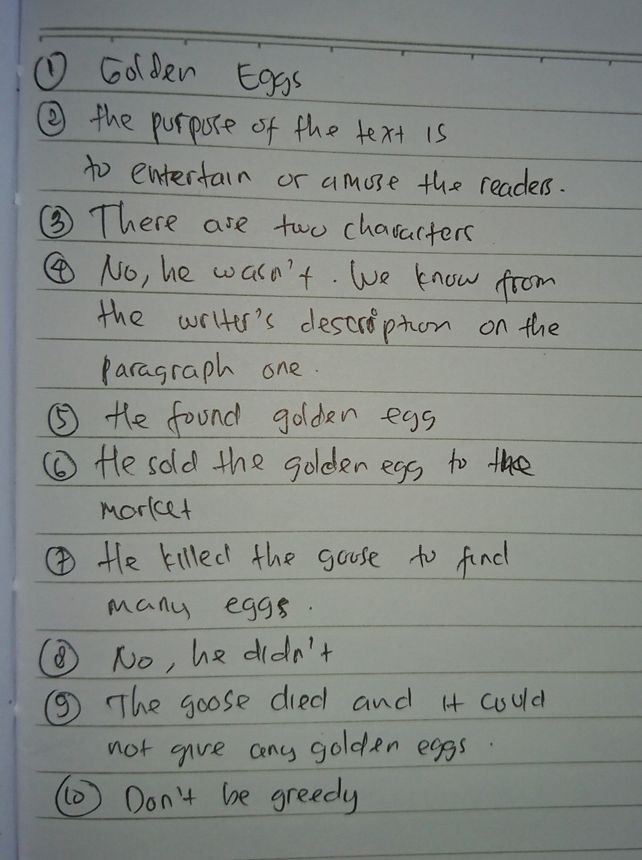 ① Golden Eggs
② the purpose of the text is
to entertain or amuse the readers.
③ There are two characters
④ No, he wasn't. We know from
the writer's description on the
paragraph one.
⑤ He found golden egg
⑥ He sold the golden egg to the
market
⑦ He killed the goose to find
many eggs.
⑧ No, he didn't
⑨ The goose died and it could
not give any golden eggs.
⑩ Don't be greedy